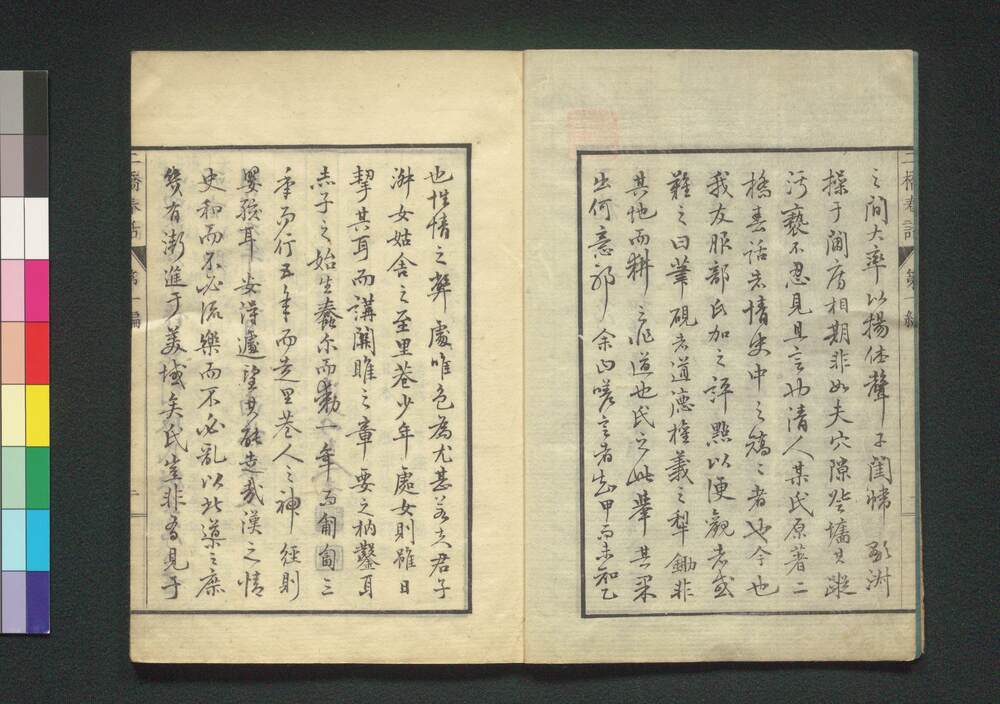 之間大率以揚往聲于閨幃
操于閫房相期非如夫穴隙登墻其蹤
污褻不忍見且言也清人某氏原著二
橋春話者情史中之矯々者也今也
我友服部氏加之評點以便觀者或
難之曰筆硯者道德權義之犁鋤非
其地而耕之非道也氏之此舉其果
出何意耶余曰嗟言者知甲而未知乙
也性情之弊處唯色為尤甚若夫君子
淑女姑舍之至里巷少年處女則雖日
挈其耳而講關雎之章要之枘鑿耳
赤子之始生蠢尔而動一年而匍匐三
年而行五年而走里巷人之神經則
嬰孩耳安得遽望其能走哉漢之情
史和而不必流樂而不必亂以此導之庶
幾有漸進于美域矣氏豈非有見于
二橋春話 第一編
二橋春話 第一編